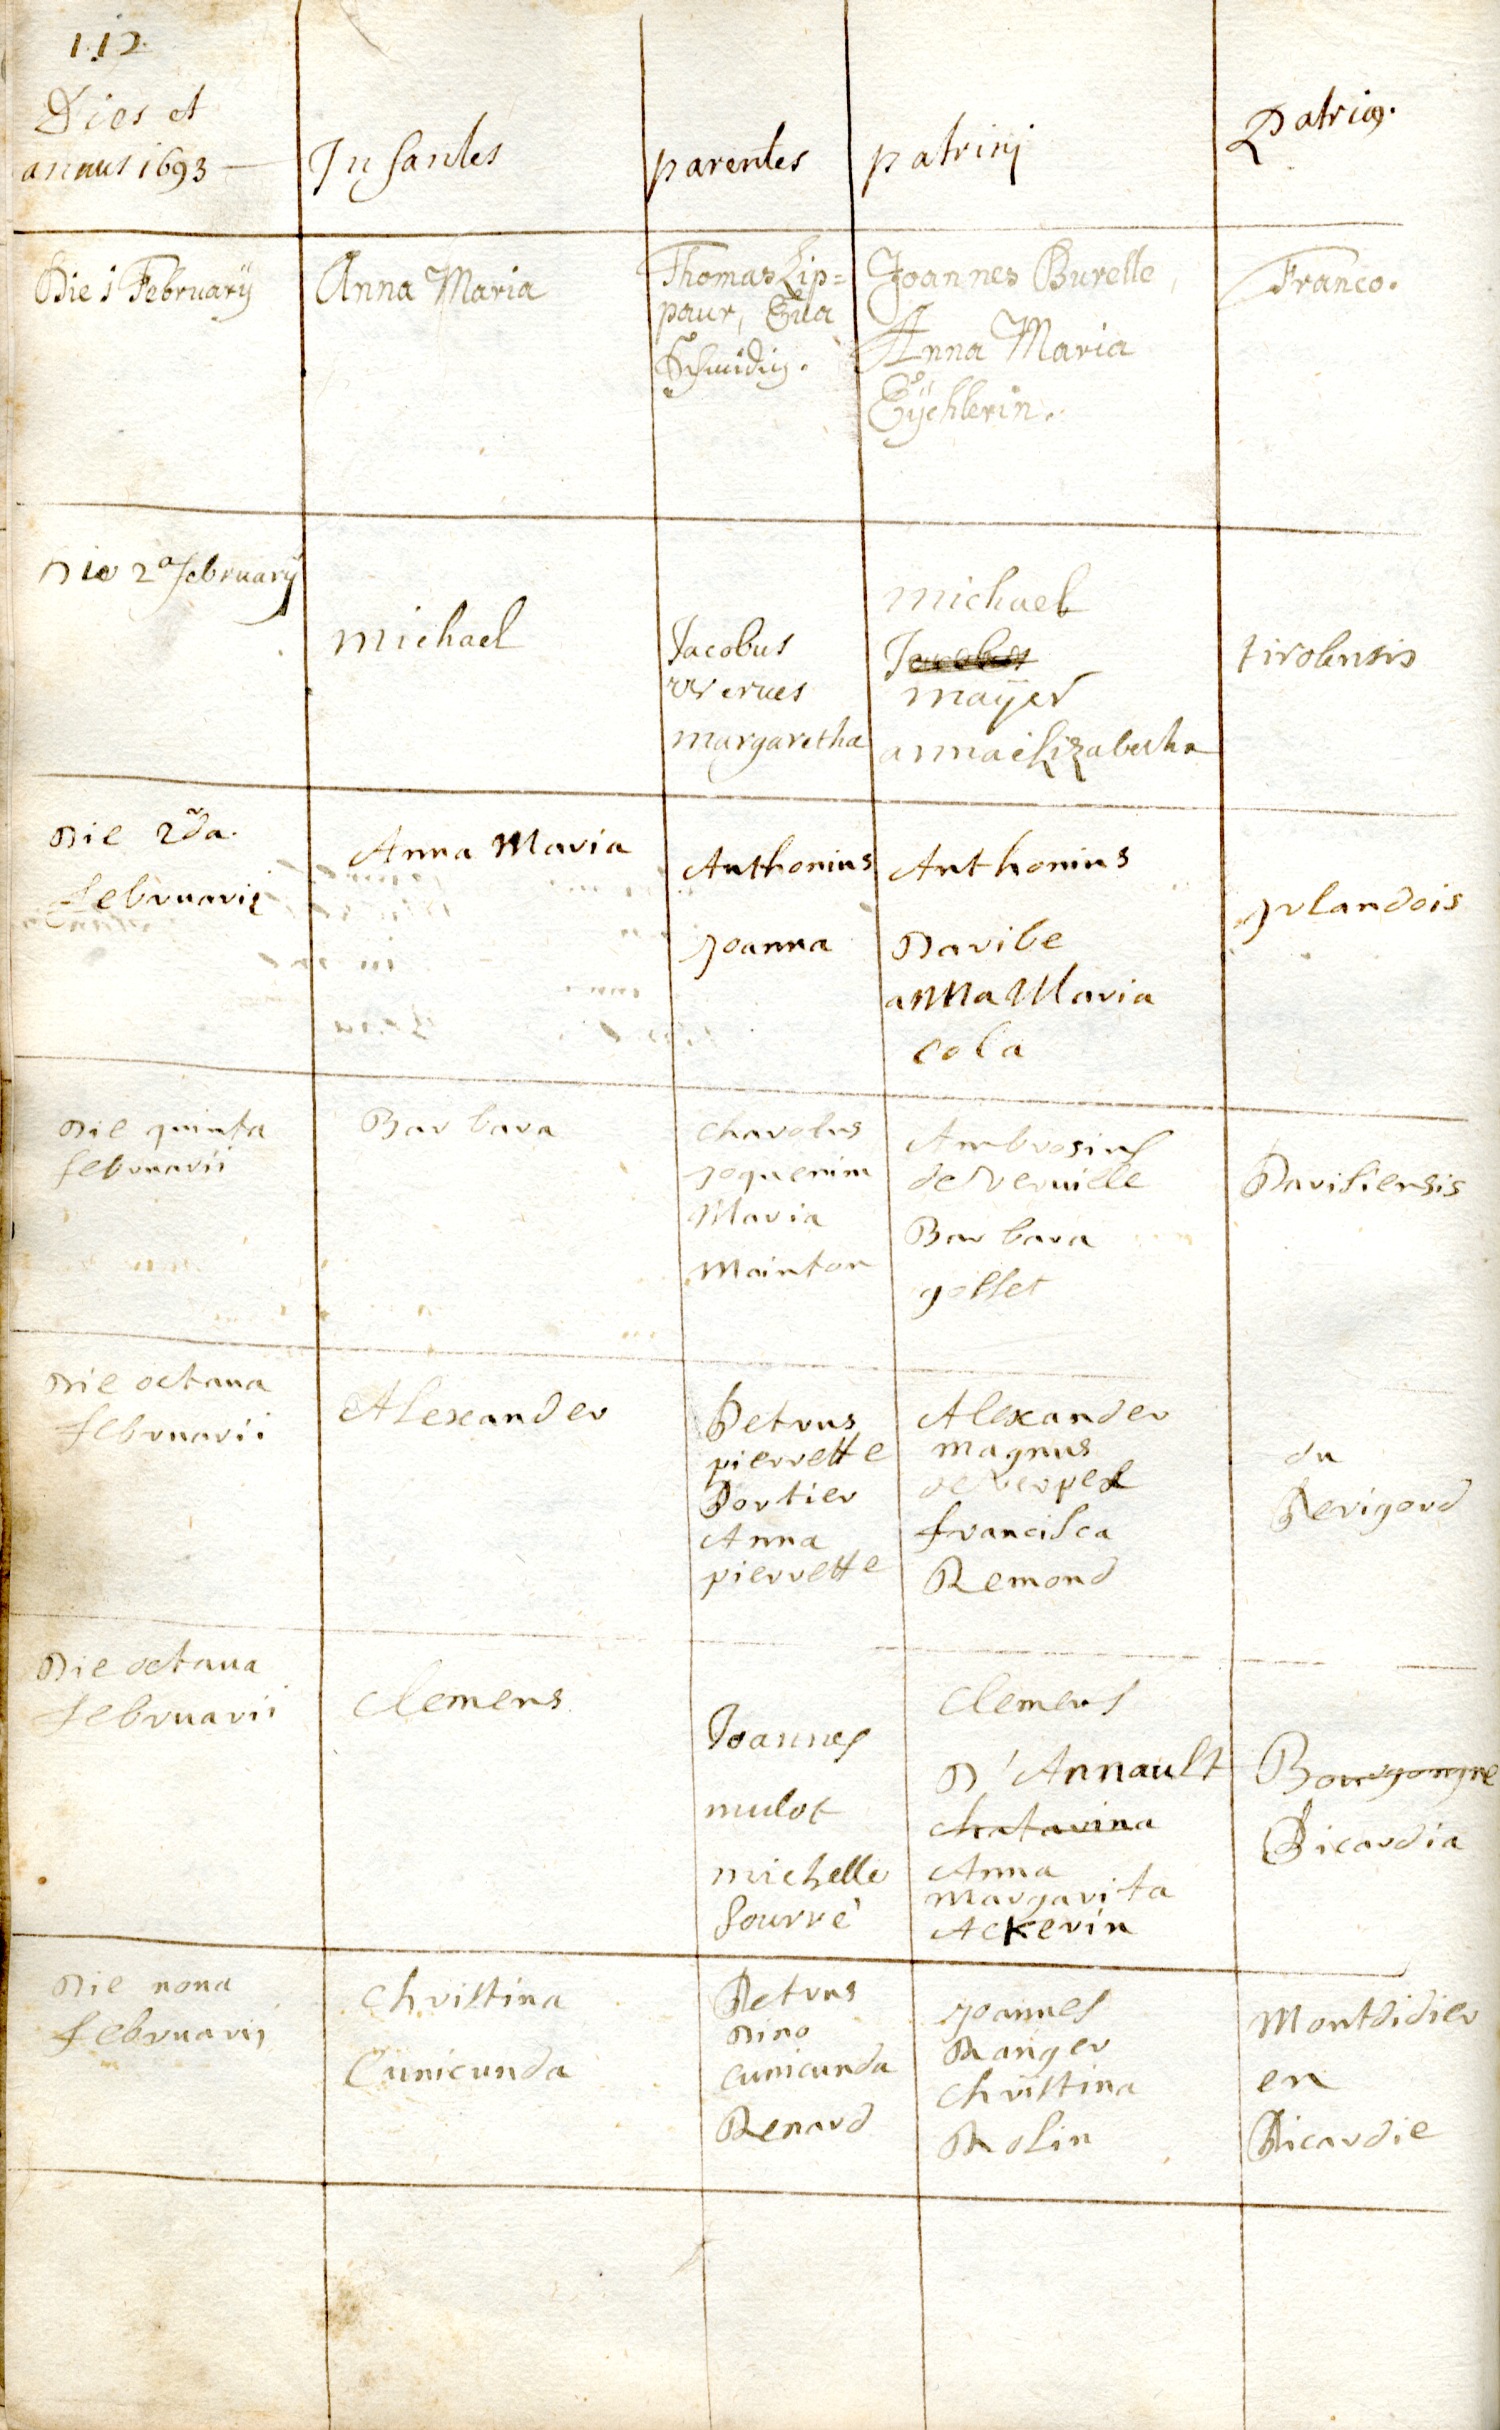 112.
Dies et
annus 1693
Infantes
parentes
patrinj
Patria.
Die 1 February
Anna Maria
Thomas Lip=
paur, Eua
Schmidin.
Joannes Burelle,
Anna Maria
Eÿchlerin.
Franco.
Die 2a february
michael
Jacobus
werues
margaretha
michael
Jacobus
mayer
anna elizabetha
tirolensis
Die 2da.
februarij
Anna Maria
Anthonius
Joanna
Anthonius
Daribe
anna Maria
cola
Irlandois
Die quinta
februarii
Barbara
Charolus
Joquenim
Maria
Mainton
Ambrosius
de Verville
Barbara
gollet
Parisiensis
Die octaua
februarii
Alexander
Petrus
pierrette
Portier
Anna
pierrette
Alexander
magnus
francisca
Remond
du
Perigord
Die octaua
februarii
Clemens
Joannes
mulot
michelle
fourré
Clemens
D'Annault
Chatarina
Anna
Margarita
Ackerin
Bourgongne
Picardia
Die nona
februarij
Christina
Cunicunda
Petrus
Dino
Cunicunda
Renard
Joannes
Ranger
Christina
Rolin
Montdidier
en
Picardie